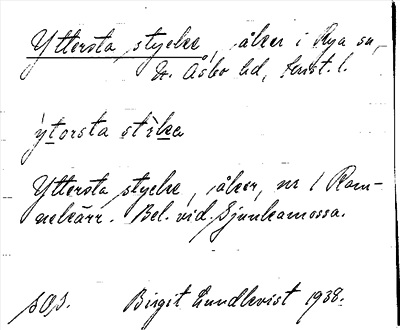 Yttersta stycke, åker i Rya sn,
N. Åsbo hd, Krist. l.
ýtorsta stìkɐ
Yttersta stycke, åker, nr 1 Ram-
nekärr. Bel. vid Sjunkamossa.
SOI. Birgit Lundkvist 1938.